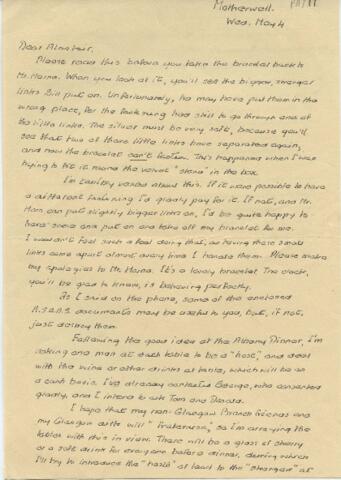 Motherwell.
Wed. May 4
Dear Alastair,
Please read this before you take the bracelet back to
Mr. Horna. When you look at it, you'll see the bigger, stronger
links Bill put on. Unfortunately, he may have put them in the
wrong place, for the fastening had still to go through one of
the little links. The silver must be very soft, because you'll
see that two of those little links have separated again,
and now the bracelet can't fasten. This happened when I was
trying to fit it round the velvet "stand" in the box.
I'm terribly vexed about this. If it were possible to have
a different fastening I'd gladly pay for it. If not, and Mr.
Horn can put slightly bigger links on, I'd be quite happy to
have some one put on and take off my bracelet for me.
I wouldn't feel such a fool doing that, as having these small
links come apart almost every time I handle them. Please make
my apologies to Mr. Horna. It's a lovely bracelet. The clock,
you'll be glad to know, is behaving perfectly.
As I said on the phone, some of the enclosed
documents may be useful to you, but, if not,
just destroy them.
Following the good idea at the Albany Dinner, I'm
asking one man at each table to be a "host", and deal
with the wine or other drinks at table, which will be on
a cash basis. I've already contacted George, who consented
gladly, and I intend to ask Tom and Donald.
I hope that my non-Glasgow Branch friends and
my Glasgow ones will "fraternise", so I'm arranging the
tables with this in view. There will be a glass of sherry
or a soft drink for everyone before dinner, during which
I'll try to introduce the "hosts" at least to the "strangers" at